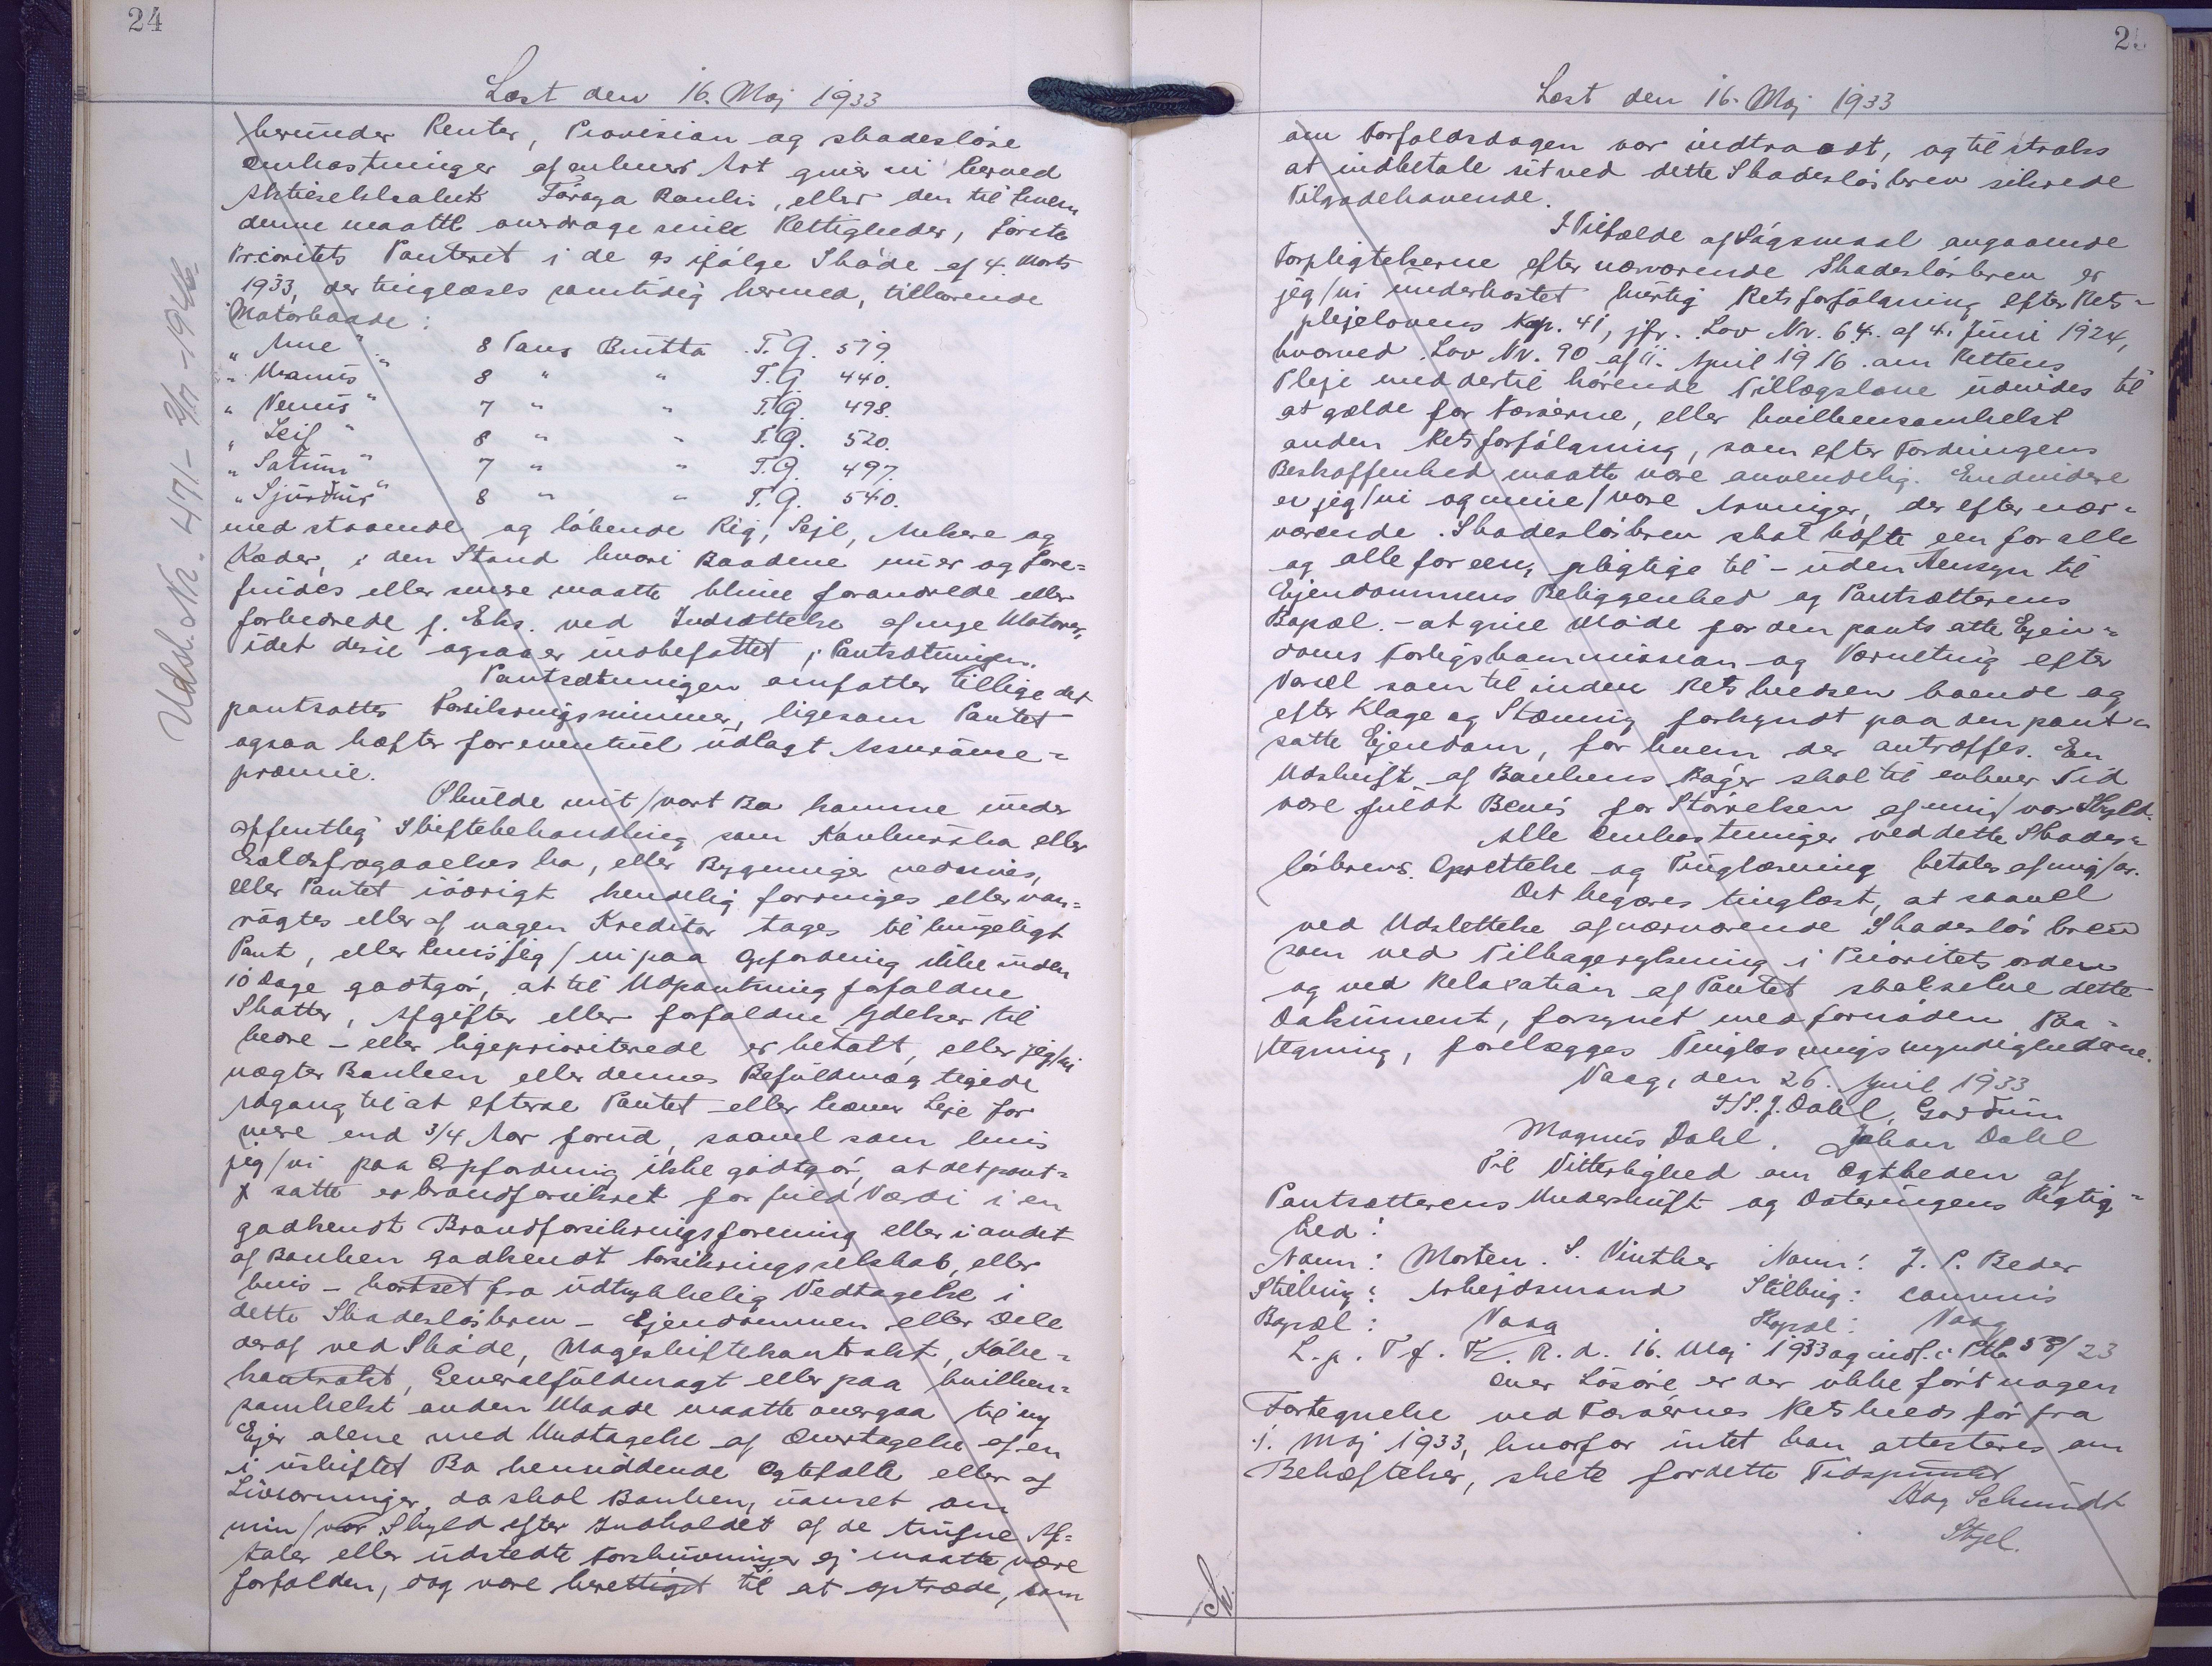 24
Læst den 16. Maj 1933
herunder Renter, Provision og skadesløse
Omkostninger af enhver Art giver vi herved
Aktieselskabet Føroya Banki, eller den til hvem
denne maatte overdrage sine Rettigheder, første
Prioritets Panteret i de os ifølge Skøde af 4. Marts
1933, der tinglæses samtidig hermed, tilhørende
Motorbaade:
" Anne " 8 Tons Brutto T.G. 519.
" Uranus " 8 " " T.G. 440.
" Venus " 7 " " T.G. 498.
" Leif " 8 " " T.G. 520.
" Saturn " 7 " " T.G. 497.
" Sjurður " 8 " " T.G. 540.
med staaende og løbende Rig, Sejl, Ankere og
Kæder, i den Stand hvori Baadene nu er og fore=
findes eller senere maatte blive forandrede eller
forbedrede f. Eks. ved Indsættelse af nye Motorer,
idet disse ogsaa er indbefattet i Pantsætningen.
Pantsætningen omfatter tillige det
pantsattes Forsikringssummer, ligesom Pantet
ogsaa hæfter for eventuel udlagt Assurance=
præmie.
Skulde mit/vort Bo komme under
offentlig Skiftebehandling som Konkursbo eller
Gældsfragaaelses bo, eller Bygninger nedrives,
eller Pantet iøvrigt kendelig forringes eller van=
røgtes eller af nogen Kreditor tages til brugeligt
Pant, eller hvis jeg/vi paa Opfordring ikke inden
10 Dage godtgør, at til Udpantning forfaldne
Skatter, Afgifter eller forfaldne Ydelser til
bedre - eller ligeprioriterede er betalt, eller jeg/vi
nægter Banken eller dennes Befuldmægtigede
Adgang til at efterse Pantet eller hæver Leje for
mere end 3/4 Aar forud, saavel som hvis
jeg/vi paa Opfordring ikke godtgør, at det pant=
satte er brandforsikret for fuld Værdi i en
godkendt Brandforsikringsforening eller i andet
af Banken godkendt Forsikringsselskab, eller
hvis - bortset fra udtrykkelig Vedtagelse i
dette Skadesløsbrev - Ejendommen eller Dele
deraf ved Skøde, Mageskiftekontrakt, Købe=
kontrakt, Generalfuldmagt eller paa hvilken=
somhelst anden Maade maatte overgaa til ny
Ejer alene med Undtagelse af Overtagelse af en
i uskiftet Bo hensiddende Ægtefælle eller af
Livsarvinger, da skal Banken, uanset om
min/vor Skyld efter Indholdet af de trufne Af=
taler eller udstedte Forskrivninger ej maatte være
forfalden, dog være berettiget til at optræde, som
Udsl. Nr. 471 - 1946
Læst den 16. Maj 1933
om Forfaldsdagen var indtraadt, og til straks
at indbetale sit ved dette Skadesløsbrev sikrede
Tilgodehavende.
I Tilfælde af Søgsmaal angaaende
Forpligtelserne efter nærværende Skadesløsbrev er
jeg/vi underkastet hurtig Retsforfølgning efter Rets=
plejelovens Kap. 41, jfr. Lov Nr. 64. af 4. Juni 1924,
hvorved Lov Nr. 90 af 11. April 1916 om Rettens
Pleje med dertil hørende Tillægslove udvides til
at gælde for Færøerne, eller hvilkensomhelst
anden Retsforfølgning, som efter Fordringens
Beskaffenhed maatte være anvendelig. Endvidere
er jeg/vi og mine/vore Arvinger, der efter nær=
værende Skadesløsbrev skal hæfte een for alle
og alle for een, pligtige til - uden Hensyn til
Ejendommens Beliggenhed og Pantsætterens
Bopæl - at give Møde for den pantsatte Ejen=
doms Forligskommission og Værneting efter
Varsel som til inden Retskredsen boende og
efter Klage og Stævning forkyndt paa den pant=
satte Ejendom, for hvem der antræffes. En
Udskrift af Bankens Bøger skal til enhver Tid
være fuldt Bevis for Størrelsen af min/vor Skyld.
Alle Omkostninger ved dette Skades=
løsbrevs Oprettelse og Tinglæsning betales af mig/os.
Det begæres tinglæst, at saavel
ved Udslettelse af nærværende Skadesløsbrev
som ved Tilbagerykning i Prioritets orden
og ved Relaxation af Pantet skal selve dette
Dokument, forsynet med fornøden Paa=
tegning, forelægges Tinglæsningsmyndighederne.
Vaag, den 26. April 1933
J/S. J. Dahl,
Magnus Dahl. Johan Dahl
Til Vitterlighed om Ægtheden af
Pantsætterens Underskrift og Dateringens Rigtig=
hed:
Navn: Morten S. Vinther Navn: J. P. Beder
Stilling: Arbejdsmand Stilling: Commis
Bopæl: Vaag Bopæl: Vaag
L. p. T f. F. R. d. 16. Maj 1933 og indf. i Ptb 58/23
Over Løsøre er der ikke ført nogen
Fortegnelse ved Færøernes Retskreds før fra
1. Maj 1933, hvorfor intet kan attesteres om
Behæftelser, skete før dette Tidspunkt
Aag Schmidt
Stgel.